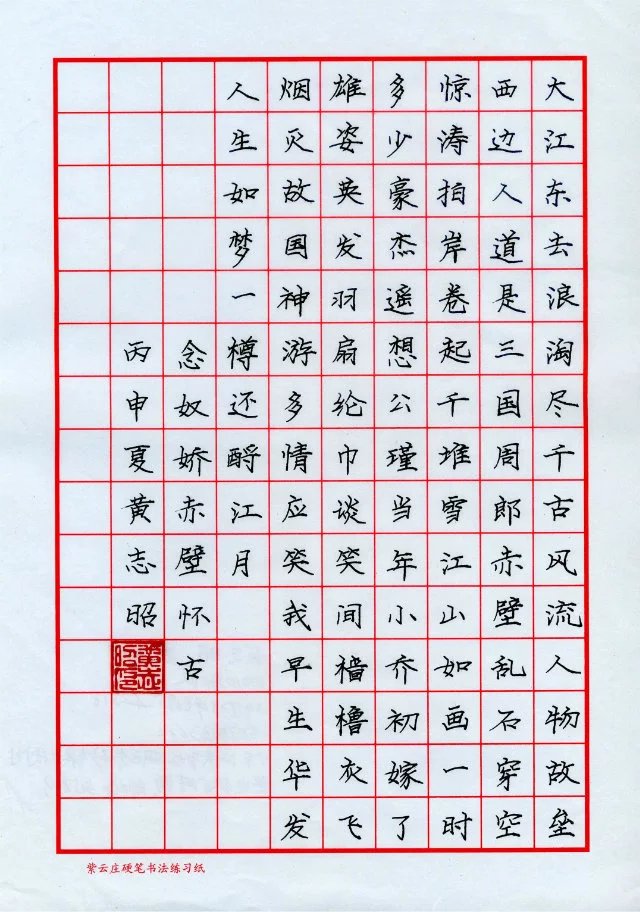 大江东去浪淘尽千古风流人物故垒
西边人道是三国周郎赤壁乱石穿空
惊涛拍岸卷起千堆雪江山如画一时
多少豪杰遥想公瑾当年小乔初嫁了
雄姿英发羽扇纶巾谈笑间樯橹灰飞
烟灭故国神游多情应笑我早生华发
人生如梦一樽还酹江月
念奴娇赤壁怀古
丙申夏黄志昭
紫云庄硬笔书法练习纸